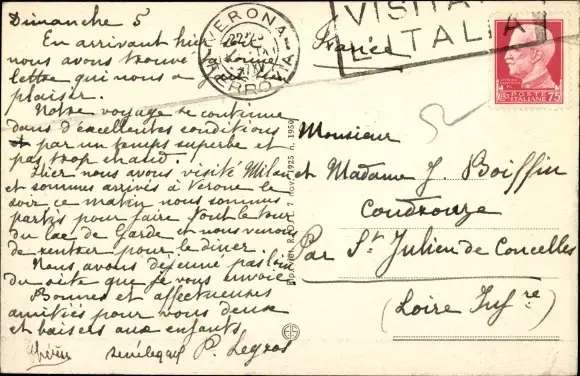 Dimanche 5
En arrivant hier soir
nous avons trouvé bonne
lettre qui nous a fait
plaisir.
Notre voyage se continue
dans d'excellentes conditions
par un temps superbe et
pas trop chaud.
Hier nous avons visité Milan
et sommes arrivés à Verone le
soir ce matin nous sommes
partis pour faire tout le tour
du lac de Garde et nous venons
de rentrer pour le diner.
Nous avons déjeuné pas loin
du site que je vous envoie
Bonnes et affectueuses
amitiés pour vous deux
et baisers aux enfants
P. Legros
VERONA
FERROVIA
VISITA
L'ITALIA
France
POSTE
ITALIANE
75
Monsieur
et Madame J. Boiffin
Coudrouze
Par St Julien de Concelles
(Loire Infre)
7 Nov. 1925 n. 1950